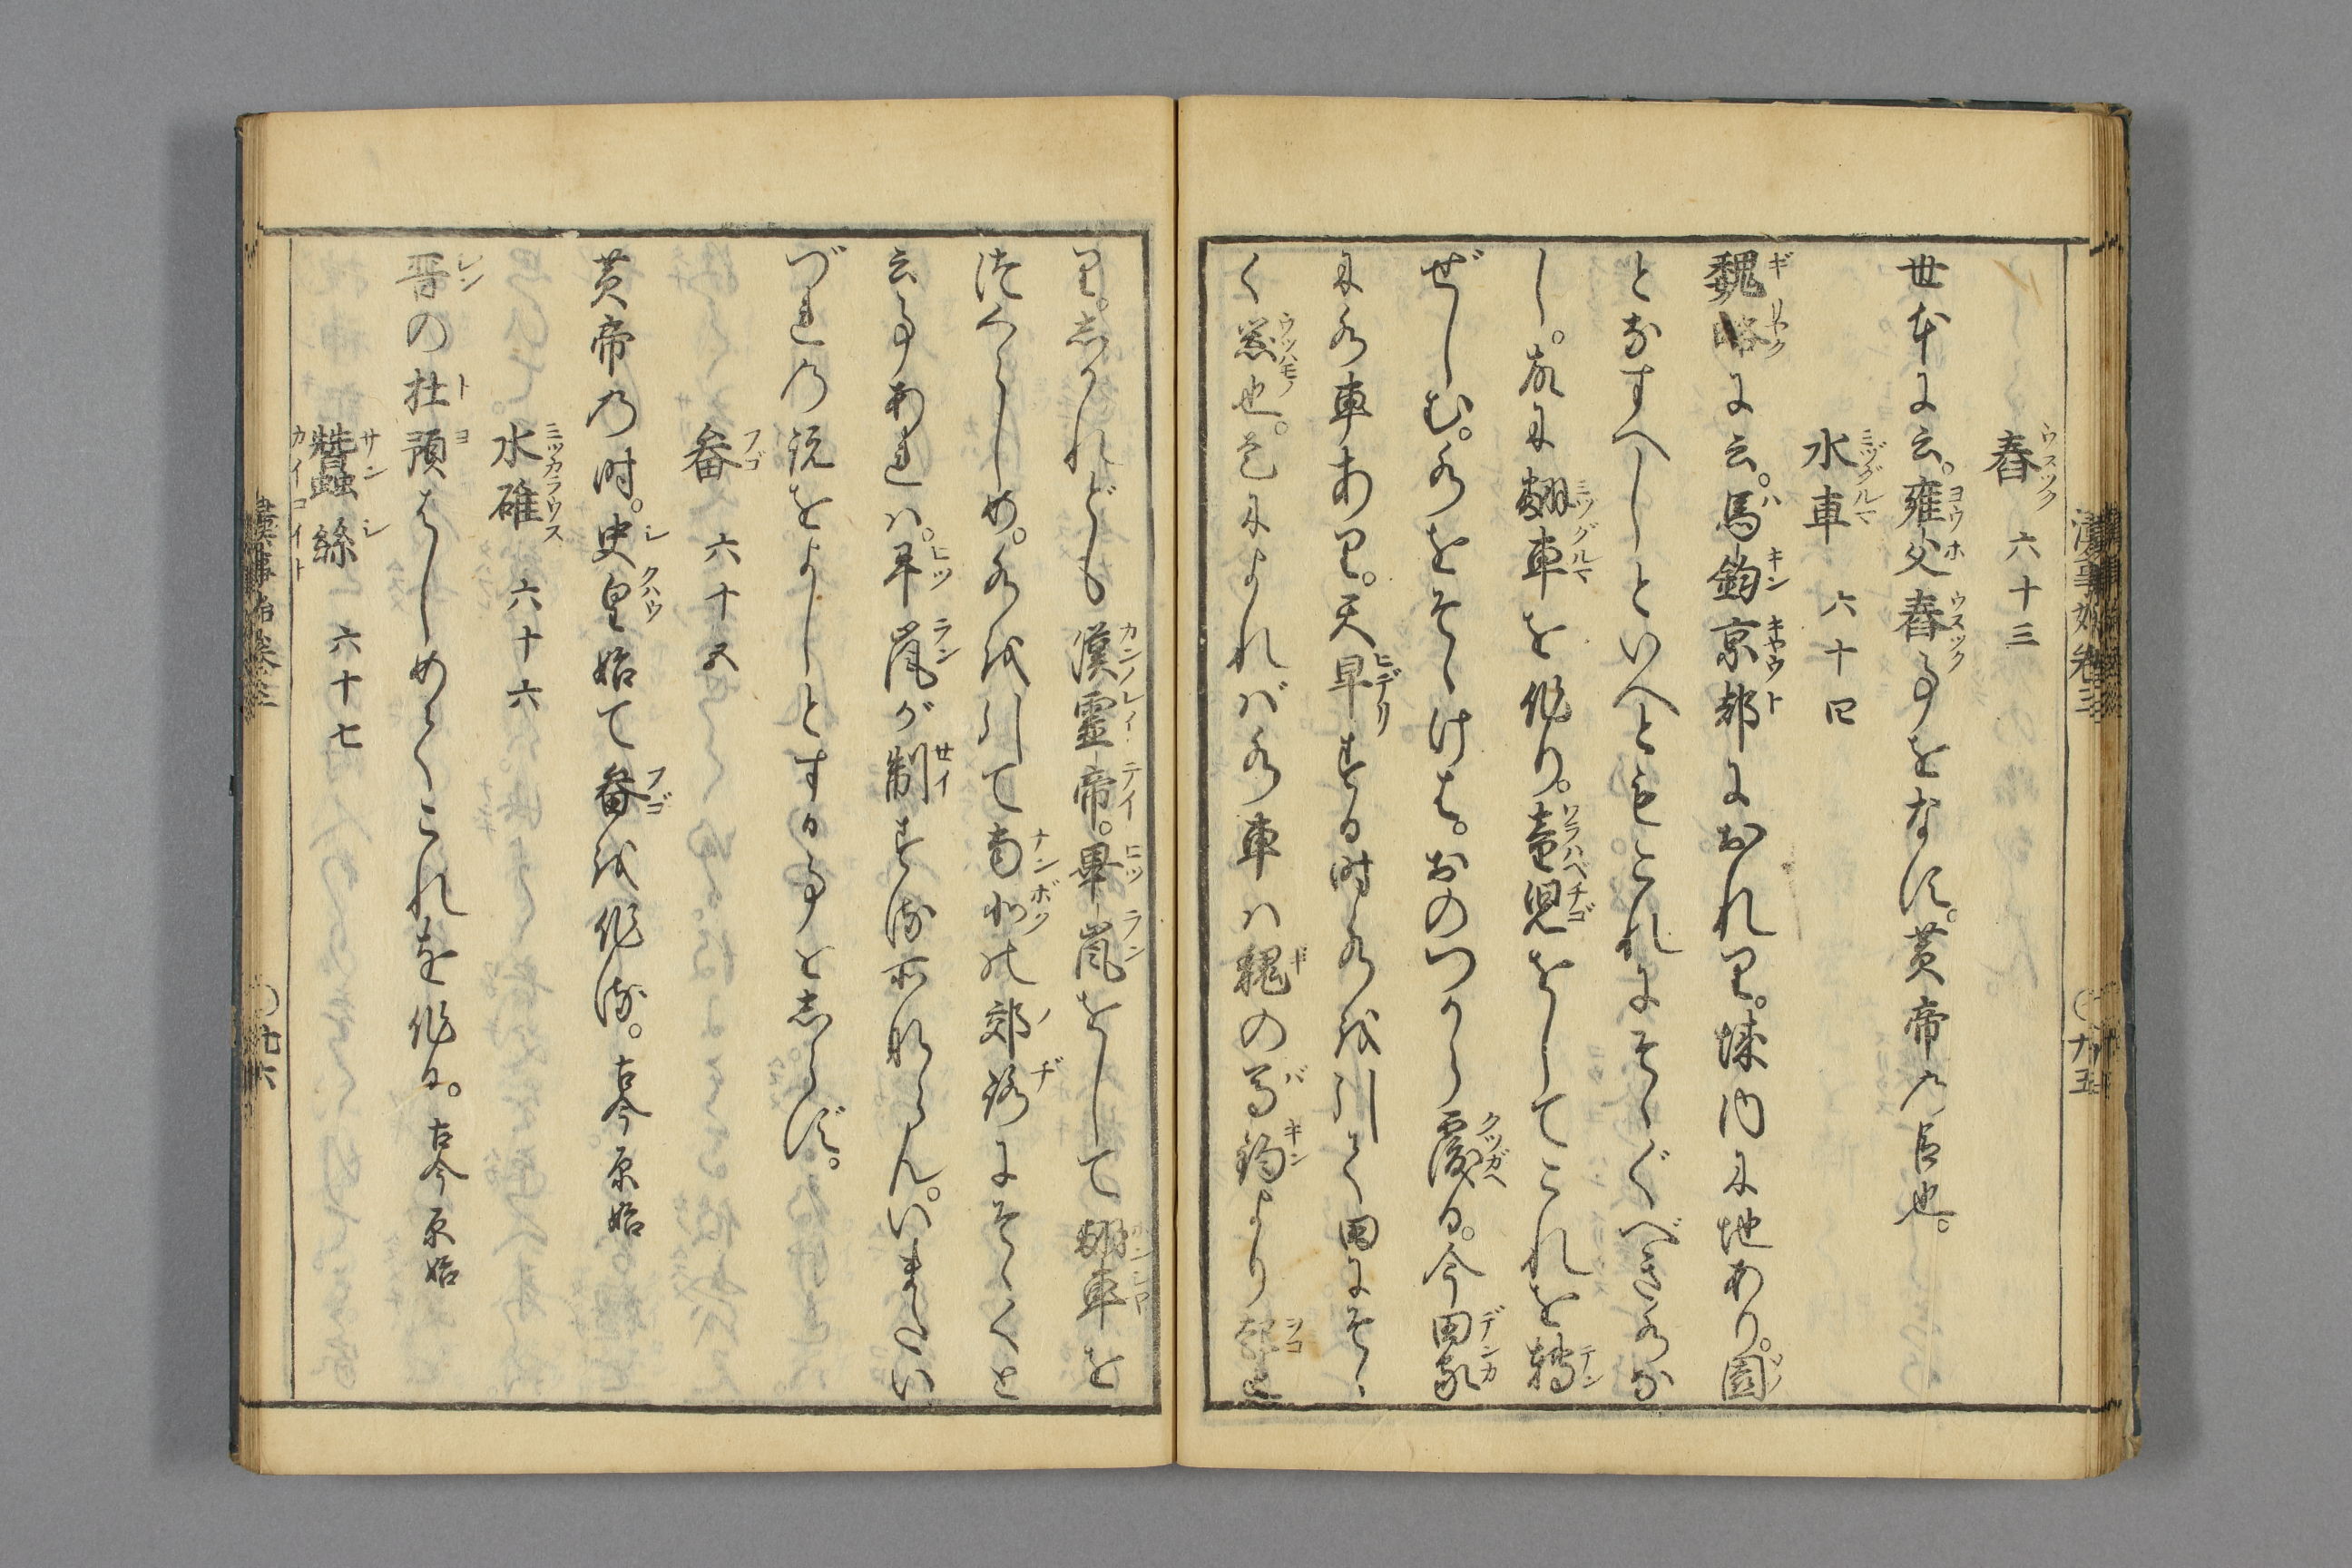 舂 六十三
世本に云。雍父舂事をなす。黄帝の臣也。
水車 六十四
魏略に云。馬鈞京都におれり。城内に地あり。園
となすへしといへともこれにそゝぐべき水な
し。故に翻車を作り。童児をしてこれを轉
ぜしむ。水をそゝけは。おのつから覆る。今田家
に水車あり。天旱する時水を引て田にそゝ
く器也。是によれバ水車ハ魏の馬鈞より起れ
り。しかれども漢靈帝。畢嵐をして翻車を
つくらしめ。水を引て南北の郊路にそゝくと
云事あれハ。畢嵐が制する所ならん。いまたい
づれの説をよしとする事をしらず。
畚 六十五
黄帝の時。史皇始て畚を作る。古今原始
水碓 六十六
晋の杜預はしめてこれを作る。古今原始
蠶絲 六十七
漢事始卷三 〇十五
漢事始卷三 〇十六